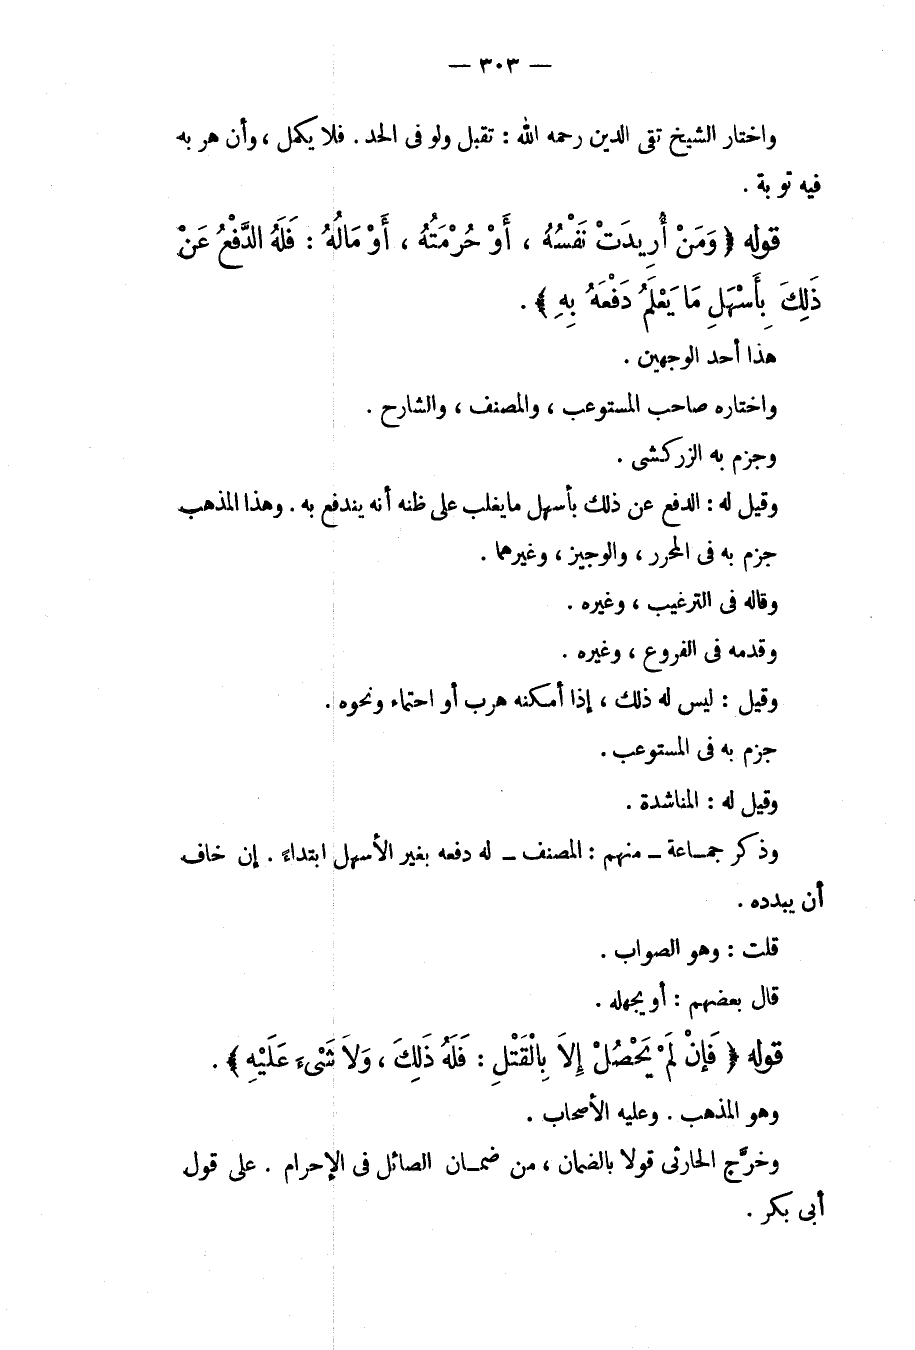 — ٣٠٣ —
واختار الشيخ تقى الدين رحمه الله : تقبل ولو فى الحد . فلا يكمل ، وأن هر به
فيه تو بة .
قوله ﴿ وَمَنْ أُرِيدَتْ نَفْسُهُ ، أَوْ حُرْمَتُهُ ، أَوْ مَالُهُ : فَلَهُ الدَّفْعُ عَنْ
ذَلِكَ بِأَسْهَلِ مَا يَعْلَمُ دَفْعَهُ بِهِ ﴾ .
هذا أحد الوجهين .
واختاره صاحب المستوعب ، والمصنف ، والشارح .
وجزم به الزركشى .
وقيل له : الدفع عن ذلك بأسهل مايغلب على ظنه أنه يندفع به . وهذا المذهب
جزم به فى المحرر ، والوجيز ، وغيرهما .
وقاله فى الترغيب ، وغيره .
وقدمه فى الفروع ، وغيره .
وقيل : ليس له ذلك ، إذا أمكنه هرب أو احتماء ونحوه .
جزم به فى المستوعب .
وقيل له : المناشدة .
وذكر جمـاعة ــ منهم : المصنف ــ له دفعه بغير الأسهل ابتداءً . إن خاف
أن يبدده .
قلت : وهو الصواب .
قال بعضهم : أو يجهله .
قوله ﴿ فَإِنْ لَمْ يَحْصُلْ إِلاَ بِالْقَتْلِ : فَلَهُ ذَلِكَ ، وَلاَ شَىْءَ عَلَيْهِ ﴾ .
وهو المذهب . وعليه الأصحاب .
وخرَّج الحارثى قولا بالضمان ، من ضمـان الصائل فى الإحرام . على قول
أبى بكر .